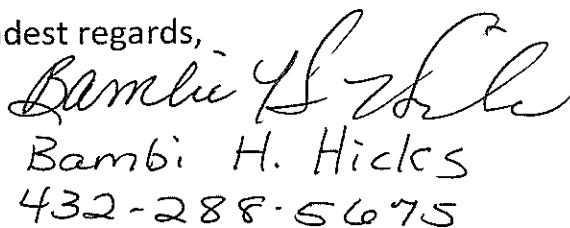 ndest regards,
Bambi H. Hicks
Bambi H. Hicks
432-288-5675